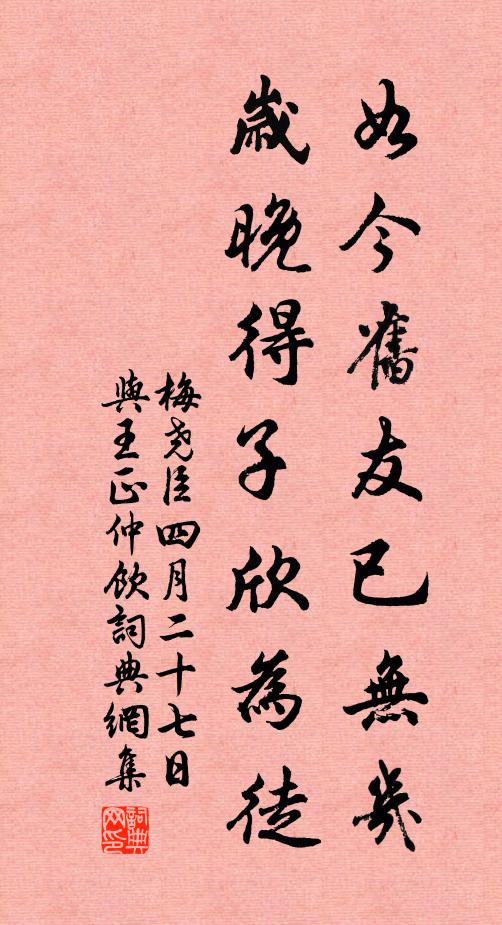 如今舊友已無幾
歲晚得子欣為徒
梅尧臣四月二十七日
與王正仲飲詞典網集
詞典
网印